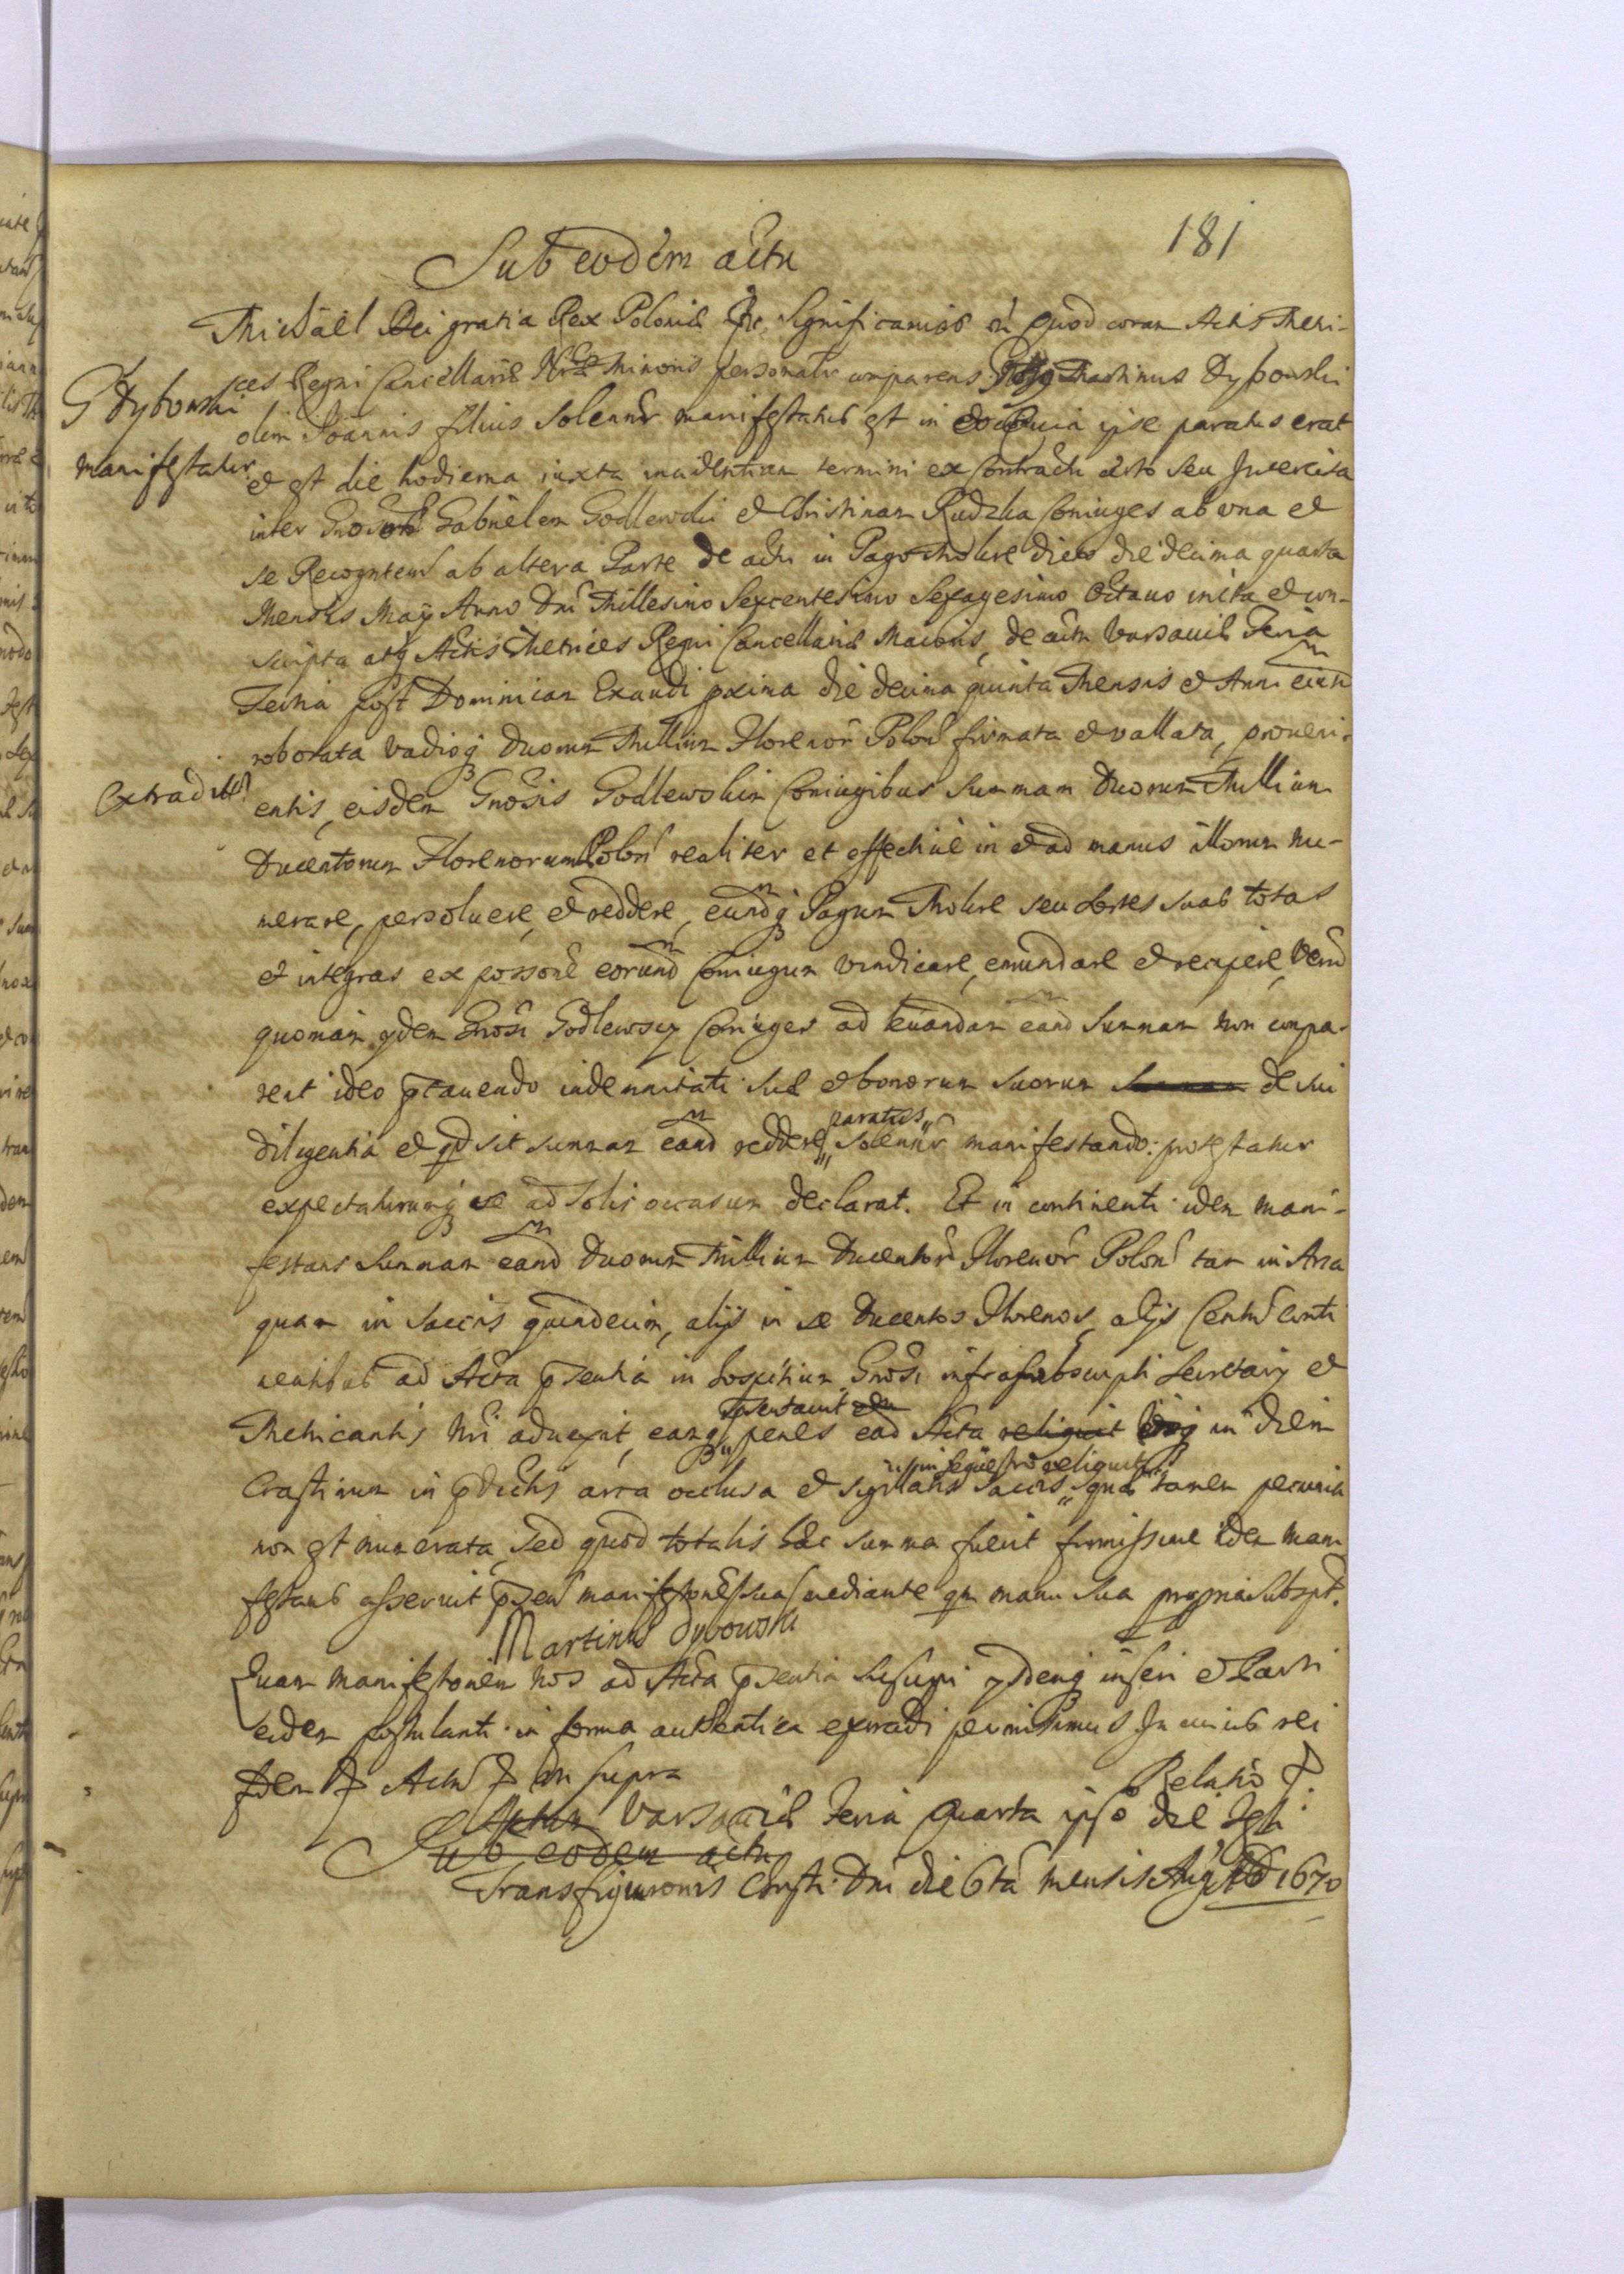 181
Sub eodem actu
Michael Dei gratia Rex Poloniæ &c. Significamus &c. Quod coram Actis Metri-
ces Regni Cancellariæ Nræ Minoris personalr comparens Gnosus Martinus Dybowski
G Dybowski
manifestatur
olim Joannis filius solennr manifestatus est in eo Quia ipse paratus erat
et est die hodierna iuxta incidentiam termini ex Contractu certo seu Intercisa
inter Gnosos Gabrielem Godlewski et Christinam Rudzka Coniuges ab vna et
se Recogntem ab altera Parte de actu in Pago Mokre dicto die decima quarta
Mensis Maÿ Anno Dni Millesimo Sexcentesimo Sexagesimo Octauo inita et con-
scripta atq Actis Metrices Regni Cancellariæ Maioris, de actu Varsauiæ Feria
Tertia post Dominicam Exaudi proxima die decima quinta Mensis et Anni eiusd
roborata vadioq Duorum Millium Florenor Polon firmata et vallata, proueni-
Extraditum
entis, eisdem Gnosis Godlewskim Coniugibus Summam Duorum Millium
Ducentorum Florenorum Polon realiter et effectiue in et ad manus illorum nu-
merare, persoluere, et reddere, eundq Pagum Mokre seu sortes suas totas
et integras ex possone eorund Coniugum vindicare, emundare et recipere, Verum
quoniam ydem Gnosi Godlewscy Coniuges ad leuandam eand Summam non compa-
rent ideo pcauendo indemnitati suæ et bonorum suorum de sui
diligentia et qd sit summam eand reddere paratus solennr manifestando protestatur
expectaturumq se ad Solis occasum declarat. Et in continenti idem mani-
festans Summam eand Duorum Millium Ducentor Florenor Polon tam in Arca
quam in saccis quindecim, alijs in se Ducentos Florenos, alijs Centum conti
nentibus ad Acta psentia in hospitium Gnosi infrasubscripti Secretarij et
Metricantis Nri aduexit, eamq psentauit penes ead Acta reliquit in diem
Crastinum in pdictis arca occlusa et sigillatis saccis in sequestro reliquit, quæ tamen pecunia
non est numerata, sed quod totalis hæc summa fuerit firmissime idem mani
festans asseruit psen manifestone sua mediante qm manu sua propria subscpt.
Martinus Dybowski
Quam manifestonem nos ad Acta psentia suscipi ijsdemq inseri et Parti
eidem postulanti in forma authentica extradi permisimus In cuius rei
fidem &c Actum &c ut supra
Relatio &c.
Actum Varsauiæ Feria Quarta ipso die Festi
Sub eodem actu
Transfiguronis Christi Dni die 6ta mensis Aug AD 1670